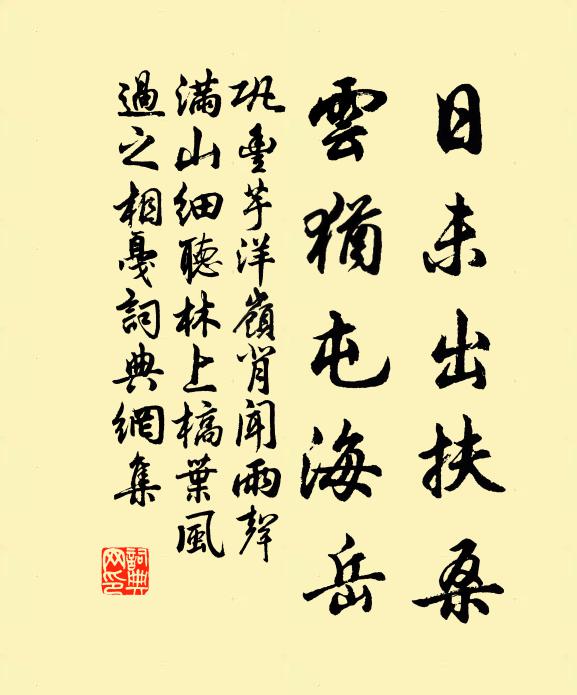 日未出扶桑
雲猶屯海岳
巩豐芋洋嶺背聞雨聲
滿山細聽林上槁葉風
過之相戛詞典網集
詞典
网印